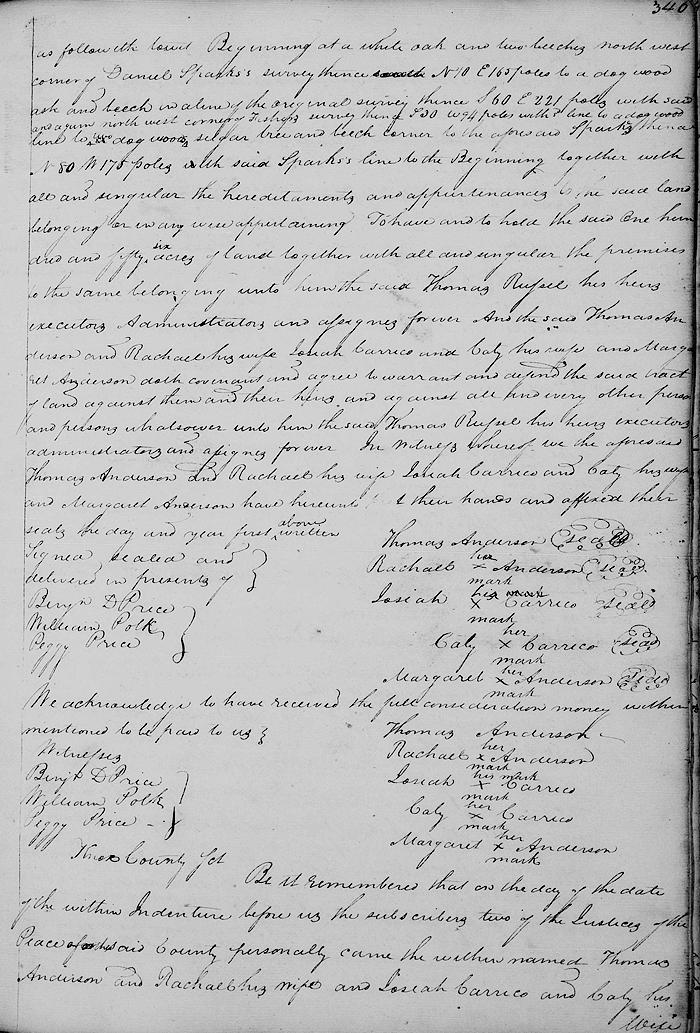 340
as followeth towit Beginning at a white oak and two beeches north west
corner of Daniel Sparks's survey thence south N 10 E 165 poles to a dog wood
ash and beech in a line of the original survey thence S 60 E 221 poles with said
and again north west corner of survey thence S 30 W 94 poles with line to a dog wood
line to two dog woods sugar tree and beech corner to the aforesaid Sparks thence
N 80 W 175 poles with said Sparks's line to the Beginning together with
all and singular the hereditaments and appurtenances to the said land
belonging or in any wise appertaining To have and to hold the said One hun
dred and fifty six acres of land together with all and singular the premises
to the same belonging unto him the said Thomas Russel his heirs
executors Administrators and assignes forever And the said Thomas An
derson and Rachael his wife Josiah Carrico and Caty his wife and Marga
ret Anderson doth covenant and agree to warrant and defend the said tract
of land against them and their heirs and against all and every other person
and persons whatsoever unto him the said Thomas Russel his heirs executors
administrators and assignes forever In Witness Whereof we the aforesaid
Thomas Anderson and Rachael his wife Josiah Carrico and Caty his wife
and Margaret Anderson have hereunto set their hands and affixed their
seals the day and year first above written
Signed sealed and
delivered in presents of
Benjn D Price
William Polk
Peggy Price
Thomas Anderson seal
Rachael her x mark Anderson seal
Josiah his mark x mark Carrico seal
Caty her x mark Carrico seal
Margaret her x mark Anderson seal
We acknowledge to have received the full consideration money within
mentioned to be paid to us
Witnesses
Benjn D Price
William Polk
Peggy Price
Thomas Anderson
Rachael her x mark Anderson
Josiah his mark x mark Carrico
Caty her x mark Carrico
Margaret her x mark Anderson
Knox County Sct
Be it remembered that on the day of the date
of the within Indenture before us the subscribers two of the Justices of the
Peace of the said County personally came the within named Thomas
Anderson and Rachael his wife and Josiah Carrico and Caty his
Wife